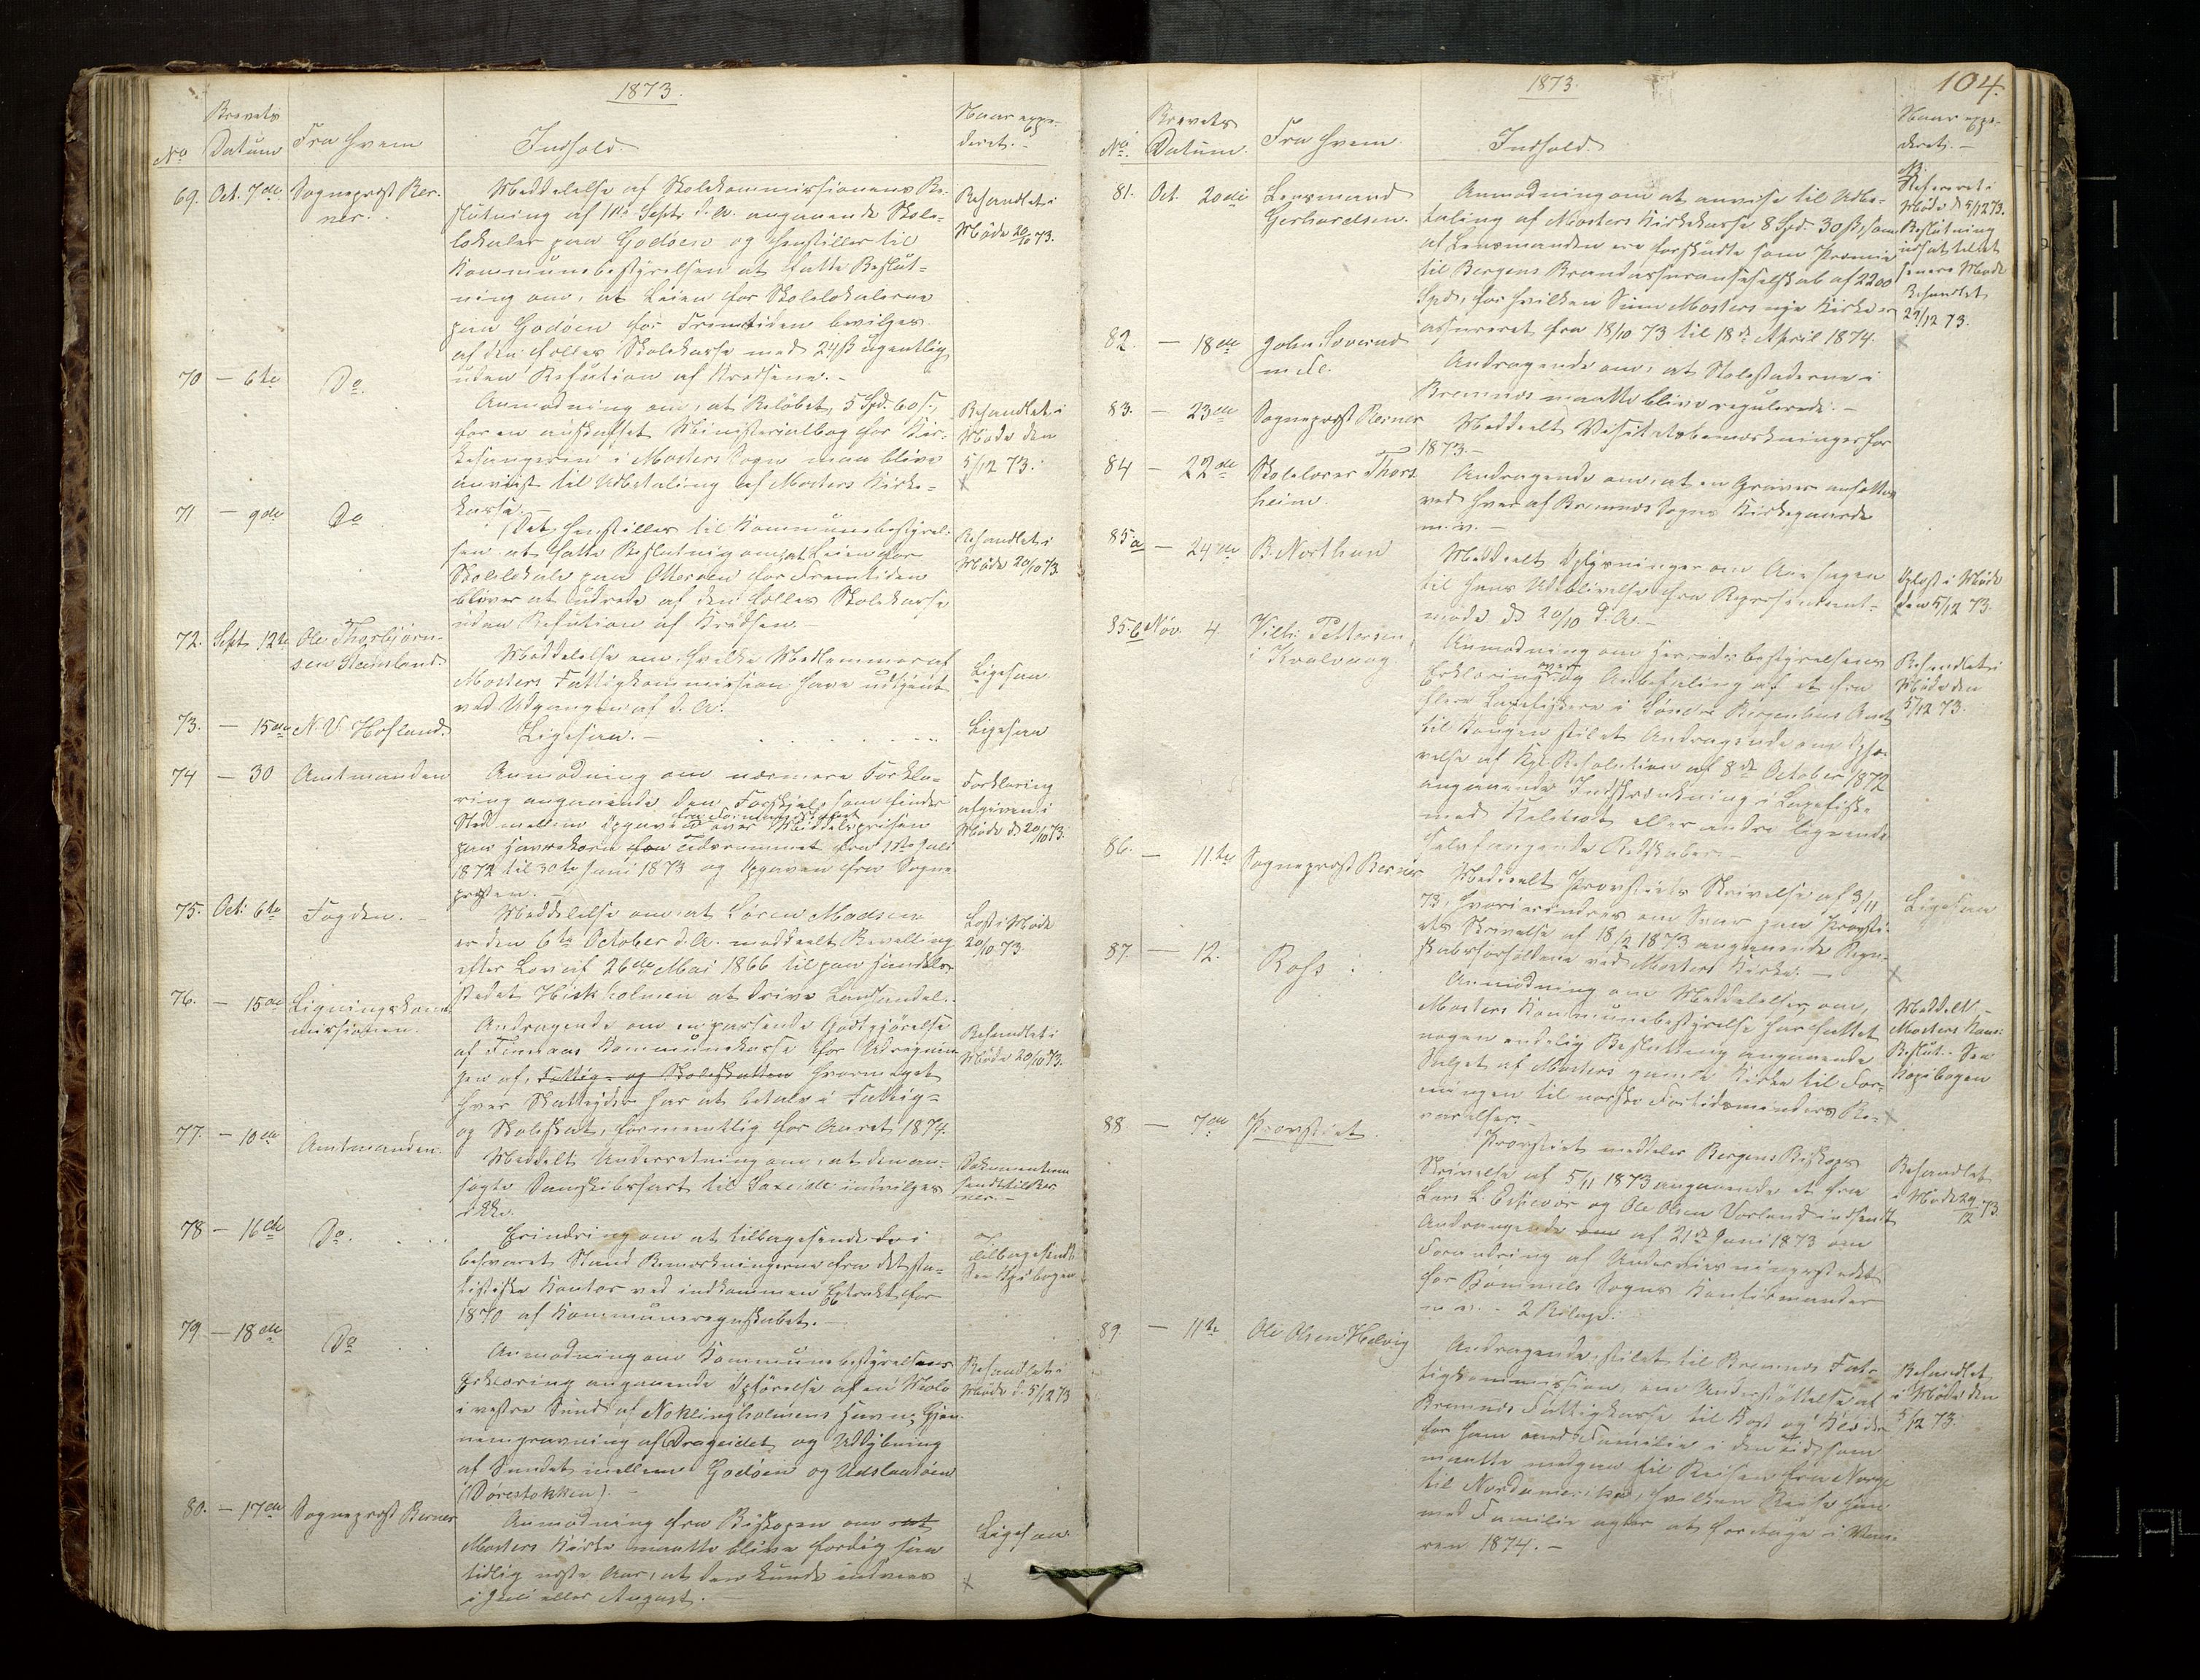 1873.
No
Brevets
Datum
Fra hvem
Indhold.
Naar expe-
deret.-
69. Oct. 7de Sogneprest Ber-
ner.
Meddelelse af Skolekommissionens Be-
slutning af 11te Septr. d. A. angaaende Skole-
lokaler paa Godøen og henstiller til
Kommunebestyrelsen at fatte Beslut-
ning om, at Leien for Skolelokalerne
paa Godøen for Fremtiden bevilges
af den fælles Skolekasse med 24 ß ugentlig
uden Refution af Kredsene.-
Behandlet i
Møde 20/10 73.
70 — 6te Do.
Anmodning om, at Beløbet, 5 Spd. 60 ß,
for en anskaffet Ministerialbog for Kir-
kesangeren i Mosters Sogn maa blive
anvist til Udbetaling af Mosters Kirke-
kasse.-
Behandlet i
Møde den
5/12 73.
71 — 9de Do
Det henstilles til Kommunebestyrel-
sen at fatte Beslutning om, at Leien for
Skolelokale paa Otterøen for Fremtiden
bliver at udrede af den fælles Skolekasse
uden Refution af Kredsen.-
Behandlet i
Møde 20/10 73.
72. Sept. 12te Ole Thorbjørn-
sen Steinsland.
Meddelelse om, hvilke Medlemmer af
Mosters Fattigkommission have udtjent
ved Udgangen af d. A.
Ligesaa.
73. — 15de N. V. Hofland.
Ligesaa.-
Ligesaa
74 — 30 Amtmanden
Anmodning om nærmere Forkla-
ring angaaende den Forskjel, som finder
Sted mellem Opgaven over Middelprisen
paa Havrekorn for Tidsrummet fra 1ste Juli
1872 til 30te Juni 1873 og Opgaven fra Sogne-
presten.-
Forklaring
afgiven i
Møde d. 20/10 73.
75. Oct. 6te Fogden.-
Meddelelse om, at Søren Madsen
er den 6te October d. A. meddeelt Bevilling
efter Lov af 26de Mai 1866 til paa Handels-
stedet Hiskholmen at drive Landhandel.
Læst i Møde
20/10 73.
76. — 15de Ligningskom-
missionen.
Andragende om en passende Godtgjørelse
af Finnaas Kommunekasse for Udregnin-
gen af, Fattig- og Skoleskatten hvormeget
hver Skatteyder har at betale i Fattig-
og Skoleskat, formentlig for Aaret 1874.
Behandlet i
Møde 20/10 73.
77. — 10de Amtmanden.
Meddelt Underretning om, at den an-
søgte Dampskibsfart til indvilges
ikke.
Dokumenterne
sendt til Ber-
ner.-
78 — 16de Do.
Erindring om at tilbagesende i
besvaret Stand Bemærkningerne fra det sta-
tistiske Kontor ved indkommen Extrakt for
1870 af Kommuneregnskabet.-
Tilbagesendt
See Kopibogen.
79 — 18de Do
Anmodning om Kommunebestyrelsens
Erklæring angaaende Opførelse af en Molo
i vestre Sund af Nøklingholmens Havn, Gjen-
nemgravning af Drageidet og Uddybning
af Sundet mellem Godøen og Udslaatøen
(Dørestokken).-
Behandlet i
Møde d. 5/12 73
80. — 17de Sogneprest Berner
Anmodning fra Biskopen om at
Mosters Kirke maatte blive færdig saa
tidlig næste Aar, at den kunde indvies
i Juli eller August.-
Ligesaa
x
104.
1873.
No.
Brevets
Datum.
Fra hvem.
Indhold.
Naar expe-
deret.-
81. Oct. 20de Lensmand
Gerhardsen.
Anmodning om at anvise til Udbe-
taling af Mosters Kirkekasse 8 Spd. 30 ß, som
af Lensmanden ere forskudte som Præmie
til Bergens Brandassuranceselskab af 2200
Spd, for hvilken Sum Mosters nye Kirke er
assureret fra 18/10 73 til 18de April 1874.
Refereret i
Møde d. 5/12 73.
Beslutning
udsat til et
senere Møde
Behandlet
29/12 73.
x
82. — 18de John
m. fl.
Andragende om, at Stolestaderne i
Bremnes maatte blive regulerede.-
83. — 23de Sogneprest Berner
Meddeelt Visitatsbemærkninger for
1873.-
84 — 22de Skolelærer Thors
heim.
Andragende om, at en Graver ansættes
ved hver af Bremnes Sogns Kirkegaarde
m. v.-
85a — 24de B. Northun
Meddeelt Oplysninger om Aarsagen
til hans Udeblivelse fra Repræsentant-
møde d. 20/10 d. A.-
Oplæst i Møde
den 5/12 73.
85b Nov. 4 Vilh. Pettersen
i Kvalvaag
Anmodning om Herredsbestyrelsens
Erklæring over og Anbefaling af et fra
flere Laxefiskere i Søndre Bergenhus Amt
til Kongen stilet Andragende om Ophæ-
velse af Kgl. Resolution af 8de October 1872
angaaende Indskrænkning i Laxefiske
med Kilenot eller andre lignende
selvfangende Redskaber.-
Behandlet i
Møde den
5/12 73.
86. — 11te Sogneprest Berner
Meddeelt Provstiets Skrivelse af 3/11
73, hvori erindres om Svar paa Provsti-
ets Skrivelse af 18/2 1873 angaaende Regn-
skabsforholdene ved Mosters Kirke.-
Ligesaa
x
87. — 12. Ross
Anmodning om Meddelelse om,
Mosters Kommunebestyrelse har fattet
nogen endelig Beslutning angaaende
Salget af Mosters gamle Kirke til For-
eningen til norske Fortidsminders Be-
varelse.-
Meddelt
Mosters Kom.
Beslut. See
Kopibogen
x
88. — 7de Provstiet.
Provstiet meddeler Bergens Biskops
Skrivelse af 5/11 1873 angaaende et fra
Lars L. og Ole Olsen Vorland indsendt
Andragende om af 21de Juni 1873 om
Forandring af Undervisningsstedet
for Bømmels Sogns Konfirmander
m. v.- 2 Bilage.
Behandlet
i Møde 29/12 73.
89 — 11te Ole Olsen Helvig
Andragende, stilet til Bremnes Fat-
tigkommission, om Understøttelse af
Bremnes Fattigkasse til Kost og Klæder
for ham med Familie i den Tid, som
maatte medgaa til Reisen fra Norge
til Nordamerika, hvilken Reise han
med Familie agter at foretage i Vaa-
ren 1874.-
Behandlet
i Møde den
5/12 73.